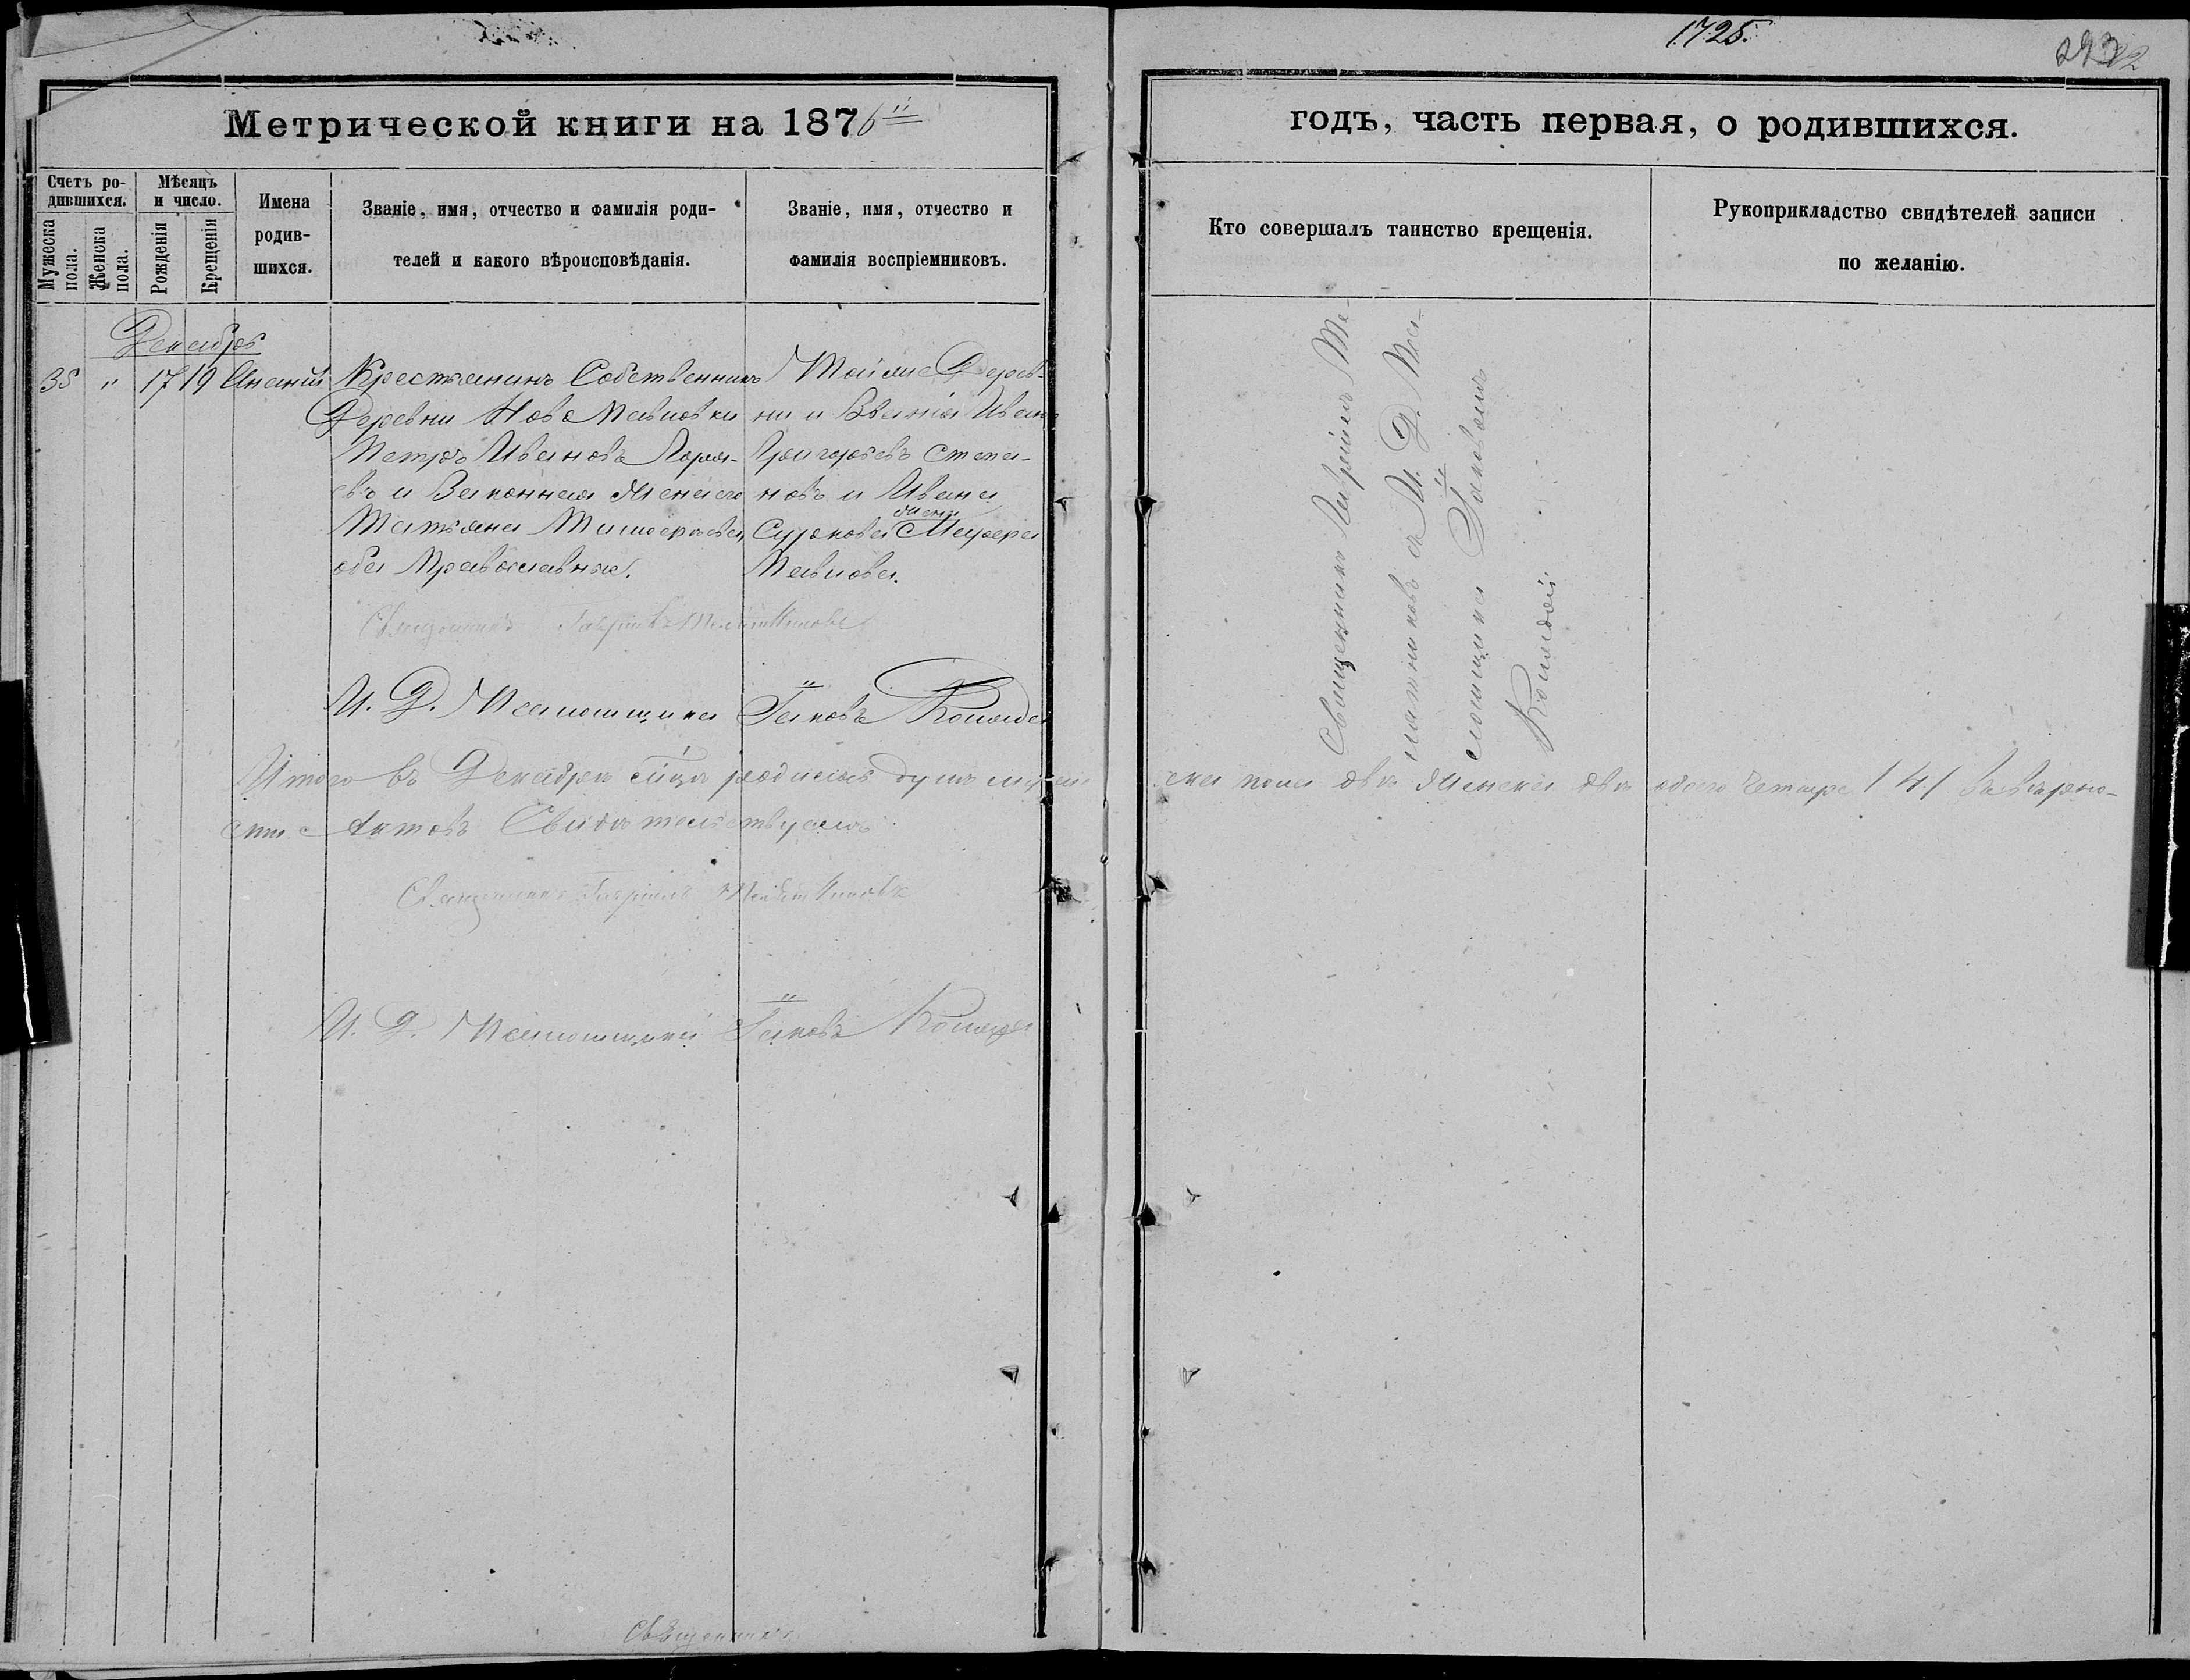 1725.
Метрической книги на 1876й
годъ, часть первая, о родившихся.
Счетъ ро-
дившихся.
Мужеска
пола.
Женска
пола.
Мѣсяцъ
и число.
Рожденія
Крещенія
Имена
родив-
шихся.
Званіе, имя, отчество и фамилія роди-
телей и какого вѣроисповѣданія.
Званіе, имя, отчество и
фамилія воспріемниковъ.
Кто совершалъ таинство крещенія.
Рукоприкладство свидѣтелей записи
по желанію.
Декабрь
35 " 17 19 Ананій
Крестьянинъ Собственникъ
Деревни Ново Павловки
Петръ Ивановъ
и Законная Жена его
Татьяна Тимоѳеева
оба Православные.
Тойже Дерев-
ни и Званія Иванъ
Григорьевъ Степа-
новъ и Ивана
Суркова жена Маѳра
Павлова.
Священникъ Гавріилъ
И. Д. Псаломщика Іаковъ
Священникъ Гавріилъ Ме-
татниковъ съ И. Д. Пса-
ломщика Іаковомъ
Итого въ Декабрѣ мѣсяцѣ родилось душъ муже-
ска пола двѣ Женска двѣ обоего Четыре /4/ Въ вѣрно-
сти Актовъ Свидѣтельствуемъ
Священникъ Гавріилъ
И. Д. Псаломщика Іаковъ
Священникъ